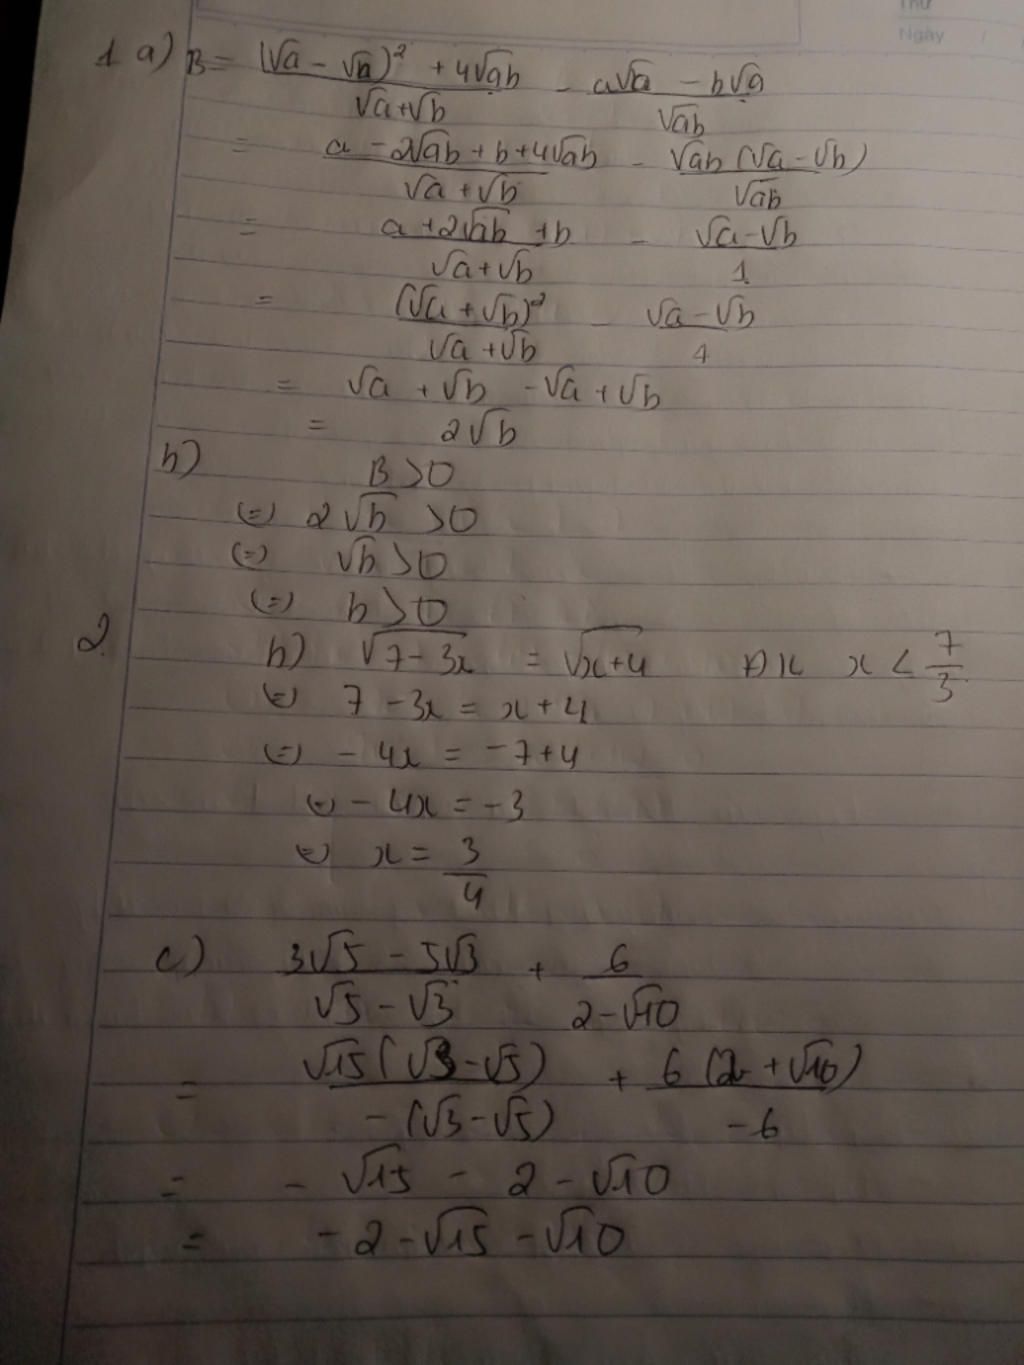 Thứ
Ngày /
1 a) B = (√a - √b)² + 4√ab / √a+√b - a√a - b√a / √ab
= a - 2√ab + b + 4√ab / √a + √b - √ab (√a - √b) / √ab
= a + 2√ab + b / √a + √b - √a - √b / 1
= (√a + √b)² / √a + √b - √a - √b / 1
= √a + √b - √a + √b
= 2√b
b) B > 0
(=) 2√b > 0
(=) √b > 0
(=) b > 0
2. b) √7 - 3x = √x+4 ĐK x < 7/3
(=) 7 - 3x = x + 4
(=) - 4x = -7+4
(=) - 4x = -3
(=) x = 3/4
c) 3√5 - 5√3 / √5 - √3 + 6 / 2 - √10
= √15 (√3 - √5) / - (√3 - √5) + 6 (2 + √10) / -6
= - √15 - 2 - √10
= - 2 - √15 - √10